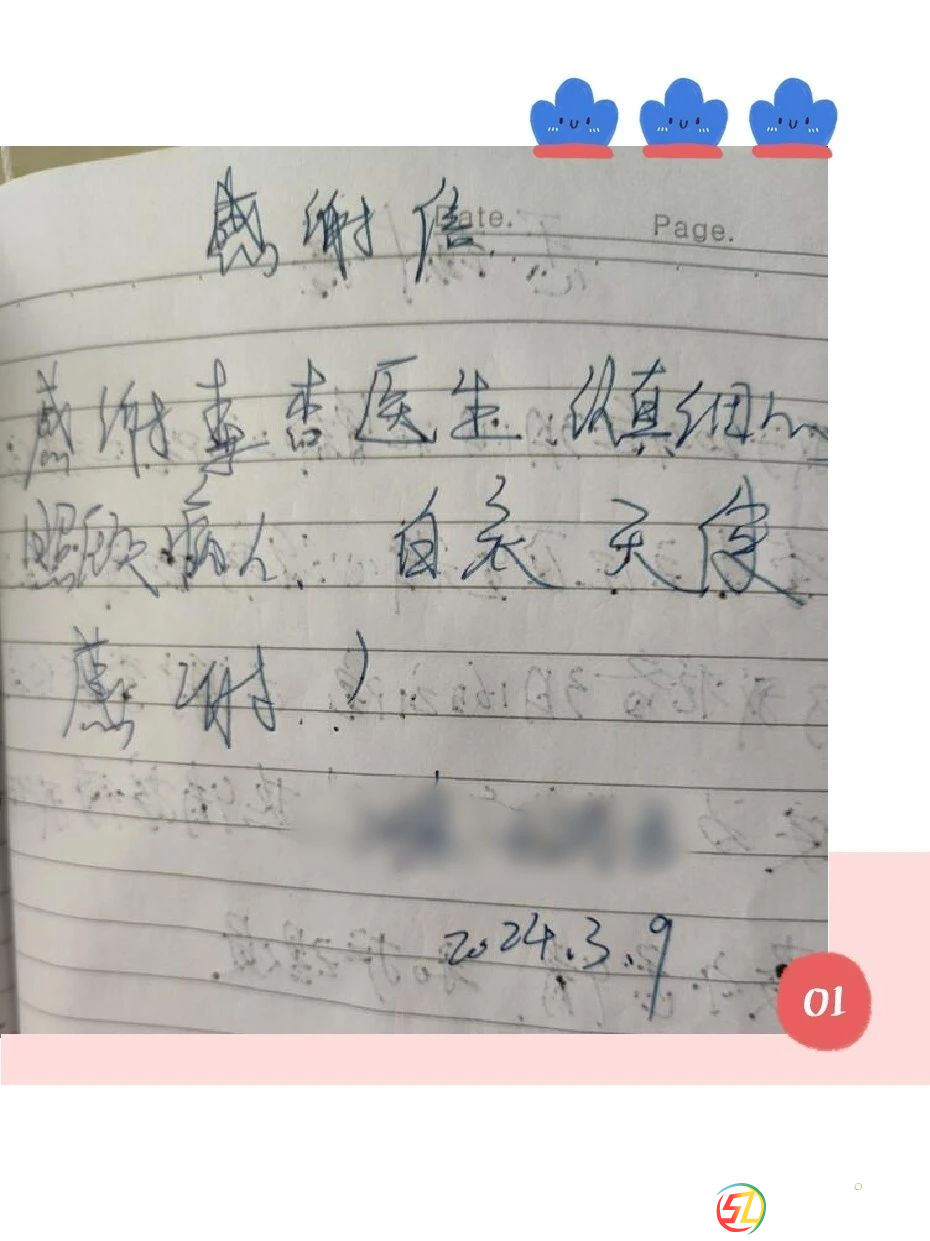 感谢信
Date. Page.
感谢 医生 认真细心
照顾病人. 白衣天使
感谢!
2024.3.9
01